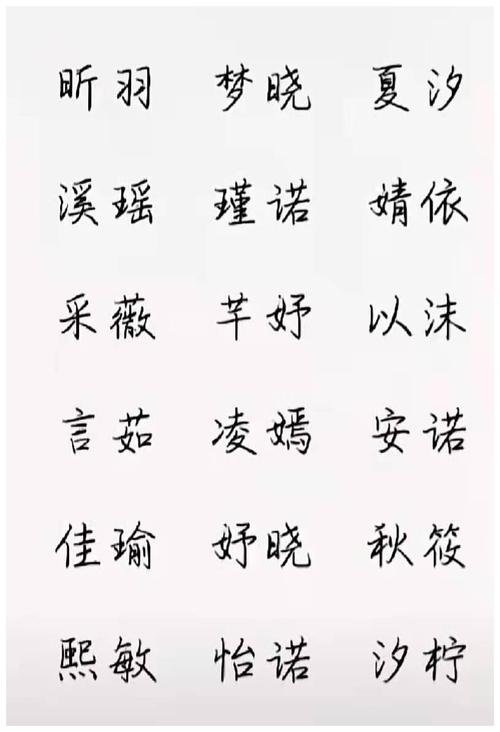 昕羽 梦晓 夏汐
溪瑶 瑾诺 婧依
采薇 芊妤 以沫
言茹 凌嫣 安诺
佳瑜 妤晓 秋筱
熙敏 怡诺 汐柠